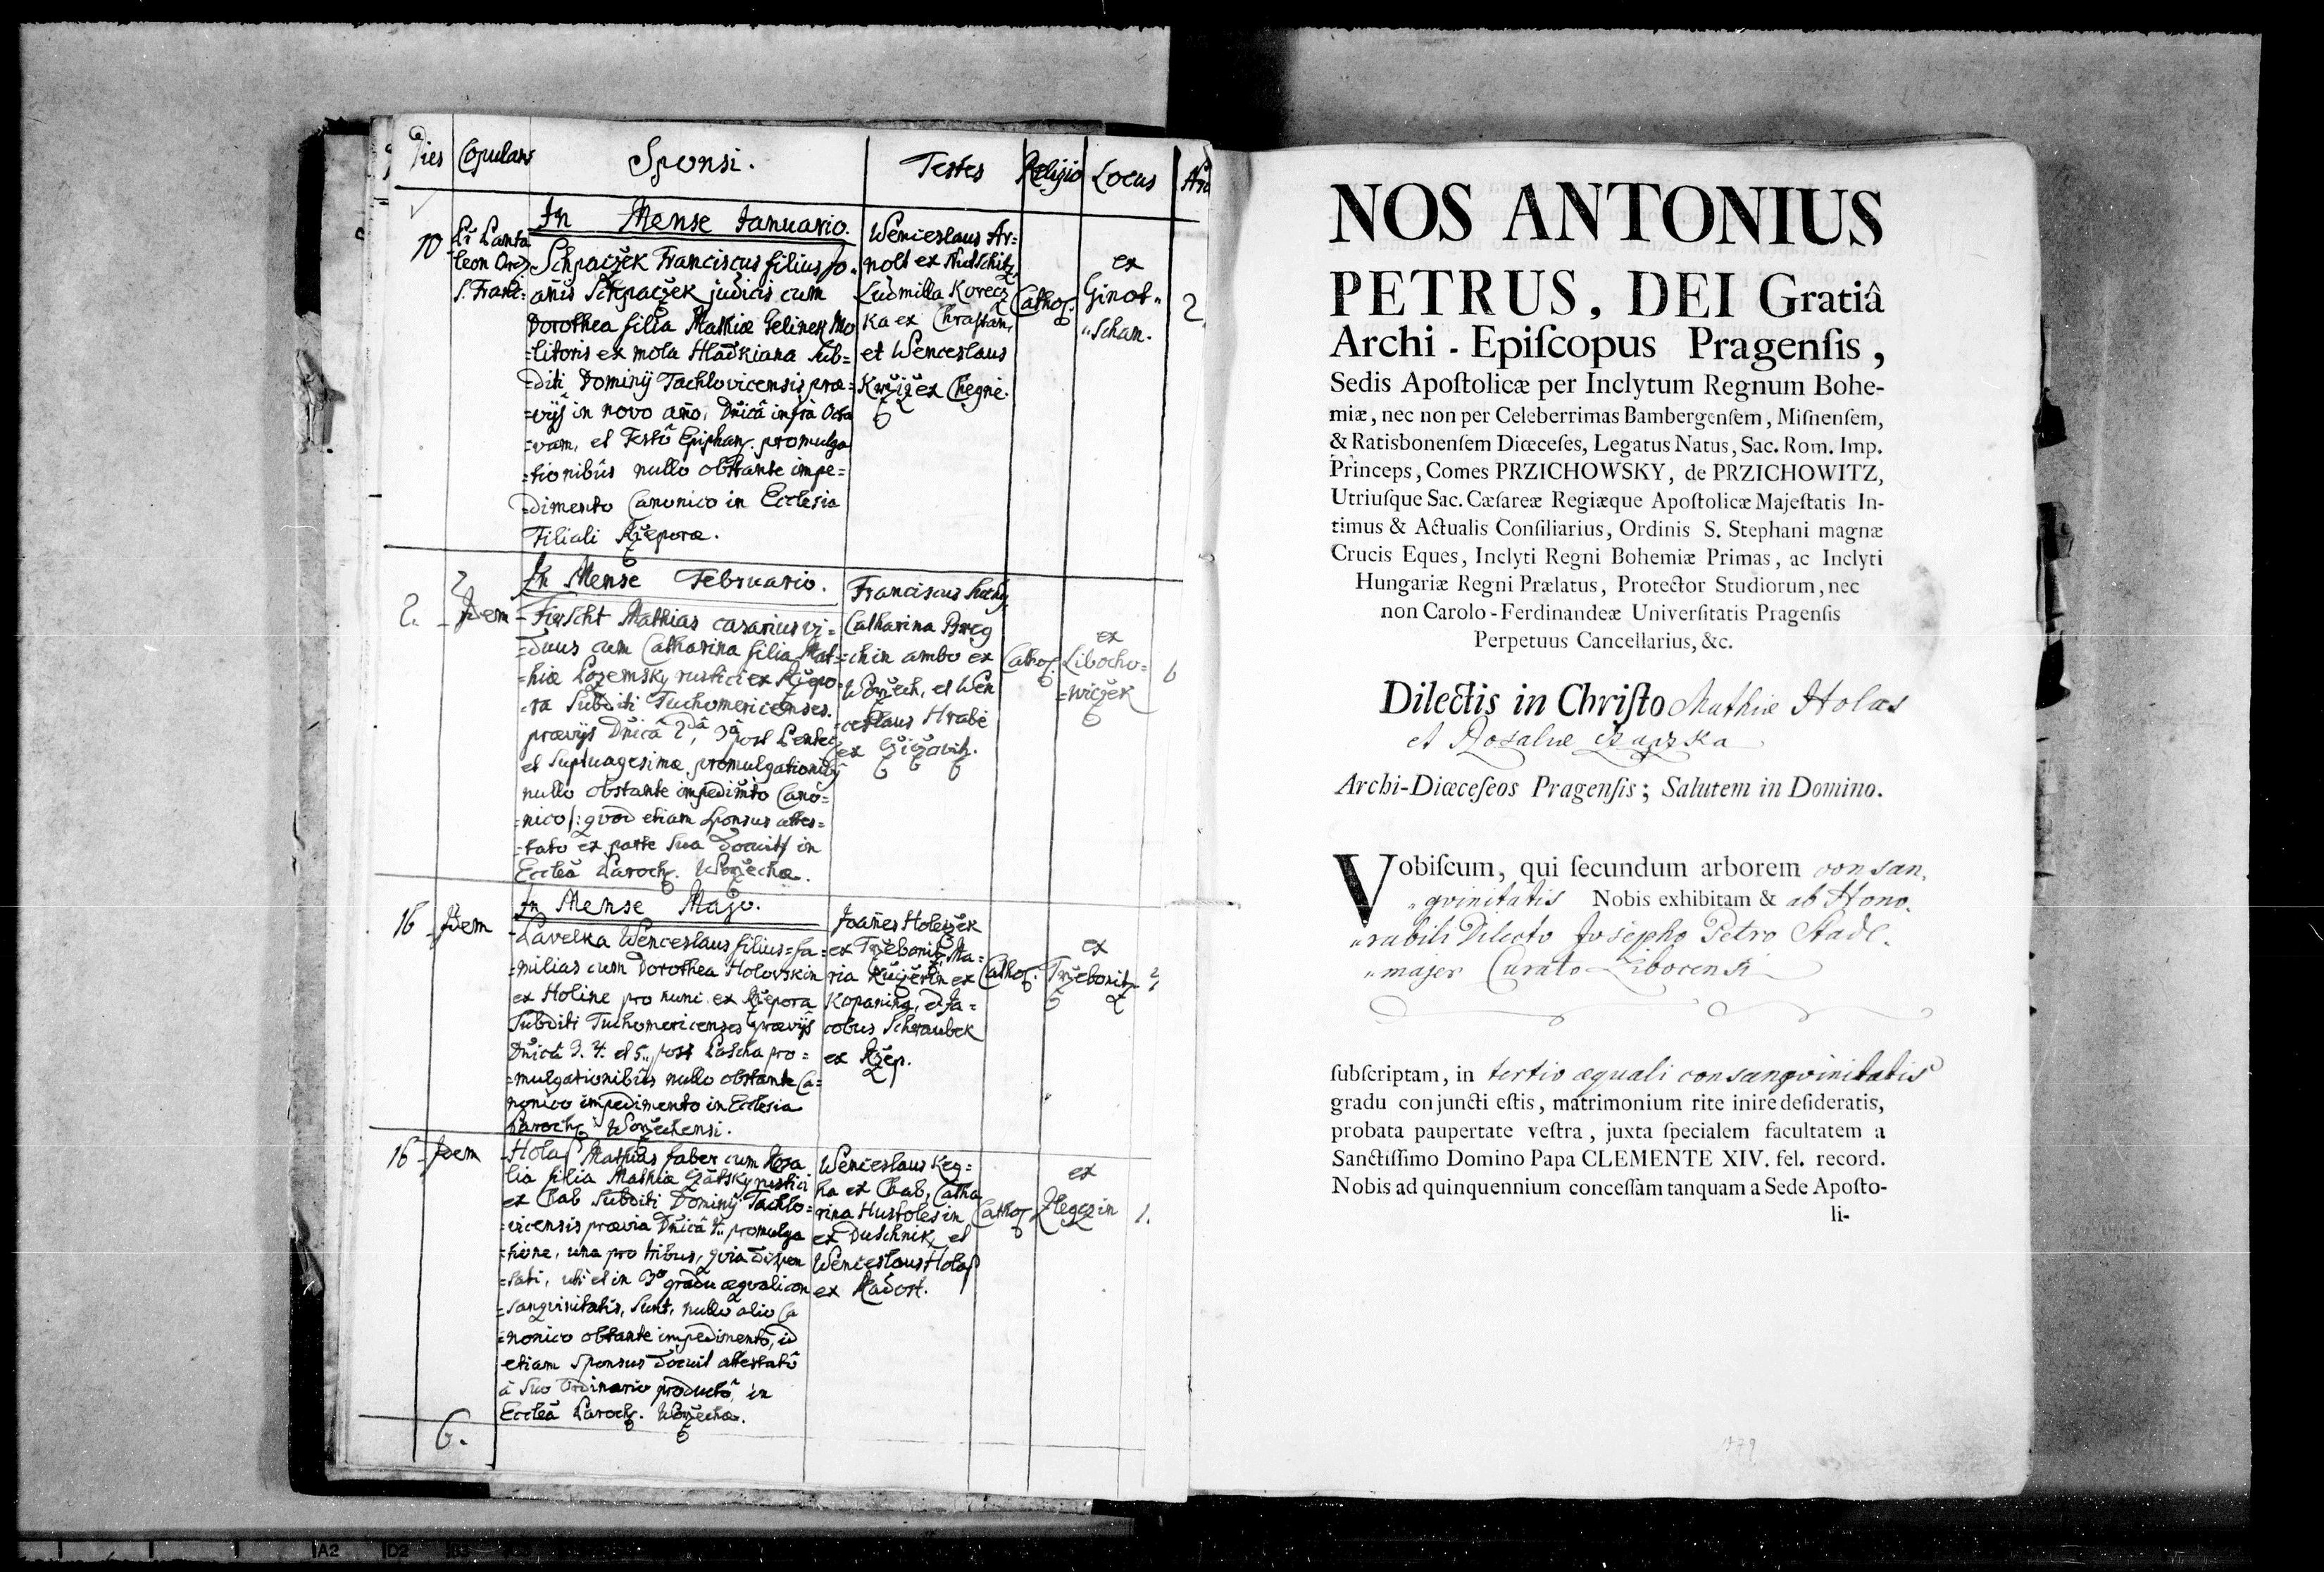 Dies Copulans Sponsi. Testes Religio Locus
In Mense Januario.
10 Schpaczek Franciscus filius Jo„
S. Franc: anis Schpaczek judicis cum
Dorothea filia Mathiæ Gelinek Mo
=litoris ex mola Hladkiana Sub=
=diti Dominij Tachlovicensis præ=
=vijs in novo año, Dñicâ infra Octa
=vam, et Festô Epiphan. promulga
=tionibûs nullo obstante impe=
=dimento Canonico in Ecclesia
Filiali Rzepora.
Wenceslaus Ar=
=nolt ex Nutschitz,
Ludmilla Korecz
ka ex Chrastan,
et Wenceslaus
Krziz ex Chegnie.
Cathol.
ex
Ginot„
„schan.
2.
In Mense Februario.
2. Idem - Fierscht Mathias casarius vi=
=duus cum Catharina filia Mat=
=hiæ Lozemsky rustici ex Rzepo
=ra Subditi Tuchomericenses.
prævijs Dñicâ 2dâ, 3â post
et Septuagesimæ promulgationibq
nullo obstante impedimto Cano=
=nico /: qvod etiam Sponsus attes=
=tato ex parte Sua docuit/ in
Eccleâ Paroch. Worzecha.
Franciscus
Catharina Breg
=chin ambo ex
Worzech, et Wen
=ceslaus Hrabie
ex
Cathol.
ex
Libocho=
=wiczek
6
In Mense Majo.
16 Idem - Lavelka Wenceslaus filius=fa=
=milias cum Dorothea Holovskin
ex Holine pro nunc ex Rzepora
Subditi Tuchomericenses prævijs
Dñicâ 3. 4. et 5.. post Pascha pro=
=mulgationibûs nullo obstante Ca=
nonico impedimento in Ecclesia
Paroch. Worzechensi.
Joañes Holeczek
ex Trzebonitz, Ma=
ria ex
Kopanina, et Ja=
cobus Schraubek
ex Rzep.
Cathol.
ex
Trzebonitz
16 - Idem - Holas Mathias faber cum Rosa
lia filia Mathiæ Czatsky rustici
ex Chab Subditi Dominij Tachlo=
=vicensis prævia Dñicâ 4.. promulga
=tione, una pro tribus, qvia dispen
=sati, uti et in 3o gradu æqvali con
=sangvinitatis, Sunt, nullo alio Ca
=nonico obstante impedimentô, id
etiam Sponsus docuit attestatô
â Suo Ordinario productô, in
Eccleâ Paroch. Worzecha.
Wenceslaus Keg=
ha ex Chab, Catha
rina Hustolesin
ex Duschnik, et
Wenceslaus Holas
ex Radost.
Cathol.
ex
1.
6.
NOS ANTONIUS
PETRUS, DEI Gratiâ
Archi - Epiſcopus Pragenſis,
Sedis Apoſtolicæ per Inclytum Regnum Bohe-
miæ, nec non per Celeberrimas Bambergenſem, Miſnenſem,
& Ratisbonenſem Diœceſes, Legatus Natus, Sac. Rom. Imp.
Princeps, Comes PRZICHOWSKY, de PRZICHOWITZ,
Utriuſque Sac. Cæſareæ Regiæque Apoſtolicæ Majeſtatis In-
timus & Actualis Conſiliarius, Ordinis S. Stephani magnæ
Crucis Eques, Inclyti Regni Bohemiæ Primas, ac Inclyti
Hungariæ Regni Prælatus, Protector Studiorum, nec
non Carolo-Ferdinandeæ Univerſitatis Pragenſis
Perpetuus Cancellarius, &c.
Dilectis in Chriſto Mathiæ Holas
et Rosaliæ
Archi-Diœceſeos Pragenſis; Salutem in Domino.
Vobiſcum, qui ſecundum arborem consan„
„gvinitatis Nobis exhibitam & ab Hono„
„rabili Dilecto Josepho Petro Stadl„
„majer Curato Liborensi
ſubſcriptam, in tertio æquali consangvinitatis
gradu conjuncti eſtis, matrimonium rite inire deſideratis,
probata paupertate veſtra, juxta ſpecialem facultatem a
Sanctiſſimo Domino Papa CLEMENTE XIV. fel. record.
Nobis ad quinquennium conceſſam tanquam a Sede Apoſto-
li-
1779
A2 D2